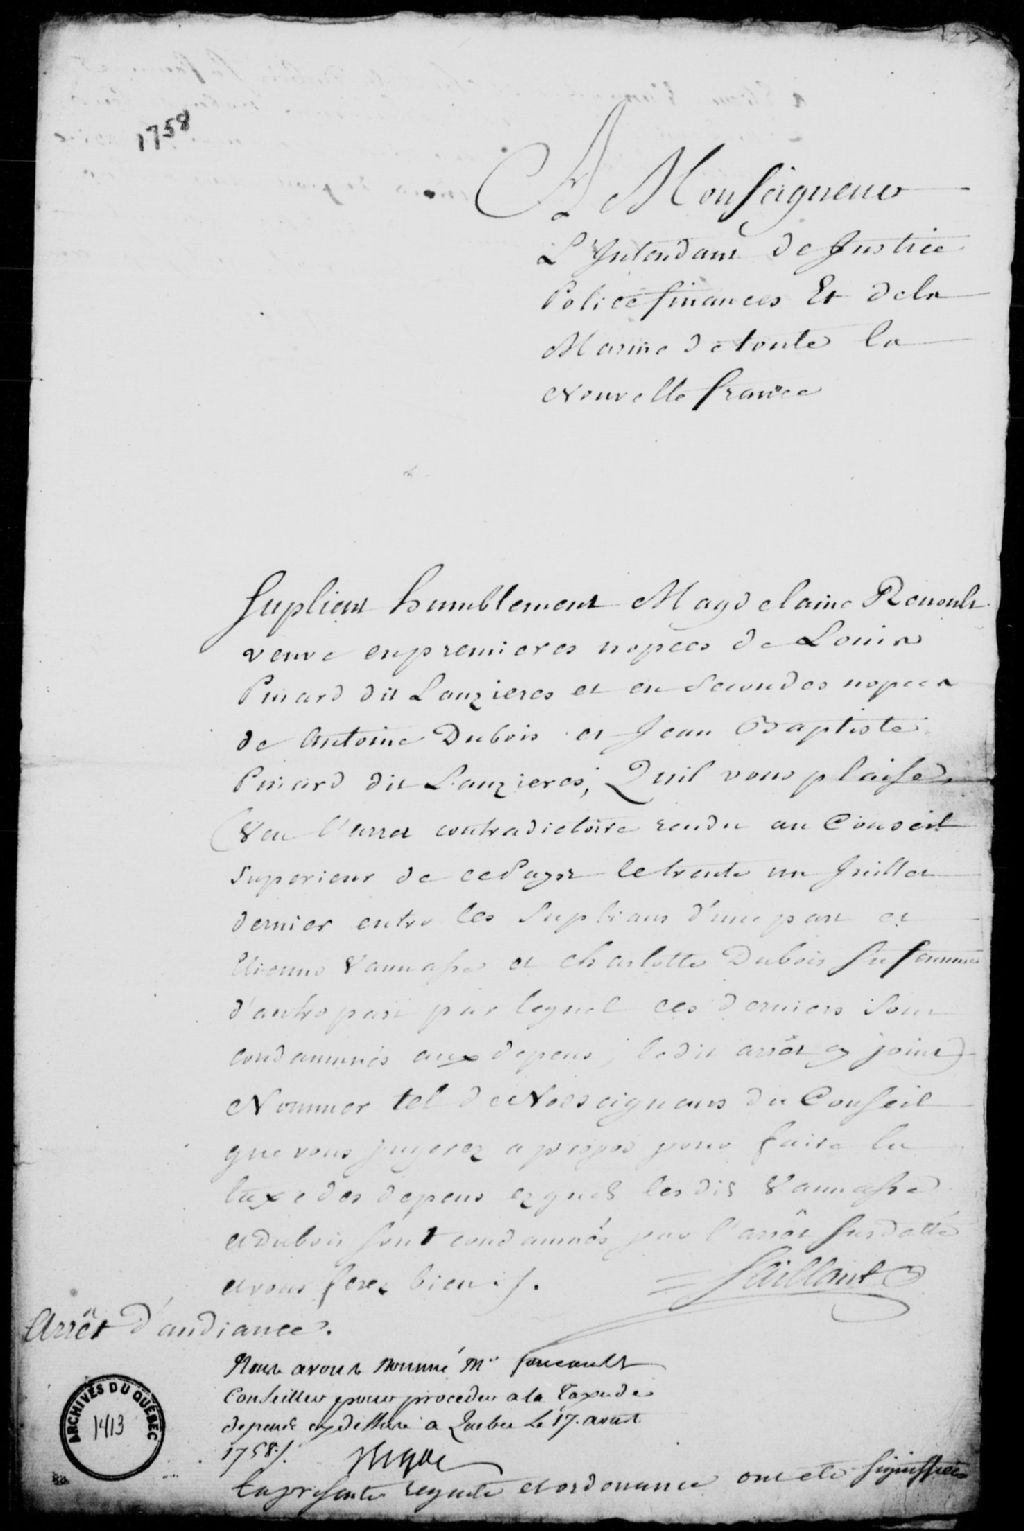 1758
A Monseigneur
L'Intendant de Justice
Police finances Et de la
Marine de toute la
Nouvelle france
Suplient humblement Magdelaine Renoult
veuve en premieres nopces de Louis
Pinard dit Lauzieres et en Secondes nopces
de Antoine Dubois et Jean Baptiste
Pinard dit Lauzieres; Quil vous plaise
(Veu l'arret contradictoire rendu au Conseil
Superieur de ce Pays le trente un Juillet
dernier entre les Suplians d'une part et
Etienne Vannasse et charlotte Dubois sa femme
d'autre part par lequel ces derniers sont
condamnés aux depens, ledit arrêt cy joint)
Nommer tel de Nosseigneurs du Conseil
que vous jugerez a propos pour faire la
taxe des depens ezquels lesdits Vannasse
et Dubois sont condamnés par l'arrêt susdatté
et vous ferez bien ./.
Saillant
Arrêt d'audiance.
Nous avons nommé Mr foucault
Conseiller pour proceder a la Taxe de
depens cy dessus a Quebec le 17. aoust
1758./.
Bigot
La presente requete et ordonnance ont eté signiffiées
ARCHIVES DU QUÉBEC
1413